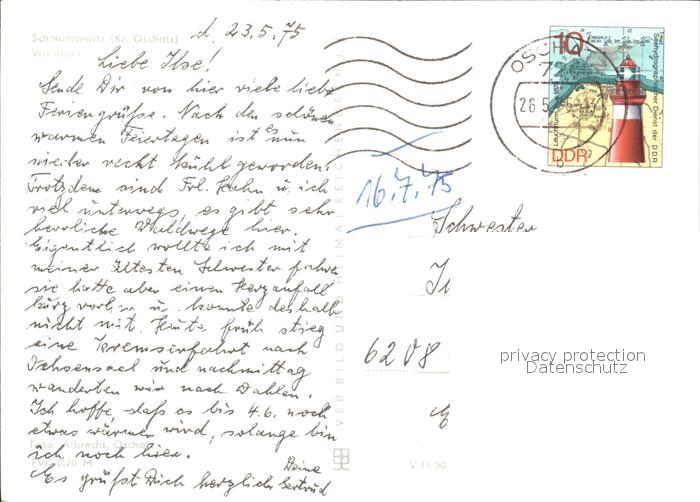 Schmannewitz (Kr. Oschatz)
d. 23.5.75
Liebe Ilse!
Sende Dir von hier viele liebe
Feriengrüsse. Nach den schönen
warmen Feiertagen ist es nun
wieder recht kühl geworden.
Trotzdem sind Frl. Hahn u. ich
viel unterwegs, es gibt sehr
herrliche Waldwege hier.
Eigentlich wollte ich mit
meiner ältesten Schwester fahren
sie hatte aber einen Herzanfall
kurz vorher u. konnte deshalb
nicht mit. Heute früh stieg
eine Kremserfahrt nach
Ochsensaal und nachmittag
wanderten wir nach Dahlen.
Ich hoffe, daß es bis 4.6. noch
etwas wärmer wird, solange bin
ich noch hier.
Es grüßt Dich herzlich Deine Gertrud
Foto: Albrecht, Oschatz
EVP 0,20 M
VEB BILD UND HEIMAT REICHENBACH
V 11 50
16.7.75
Schwester
6208
OSCHATZ
72
26.5
10
Seehydrographischer Dienst der DDR
DDR
privacy protection
Datenschutz